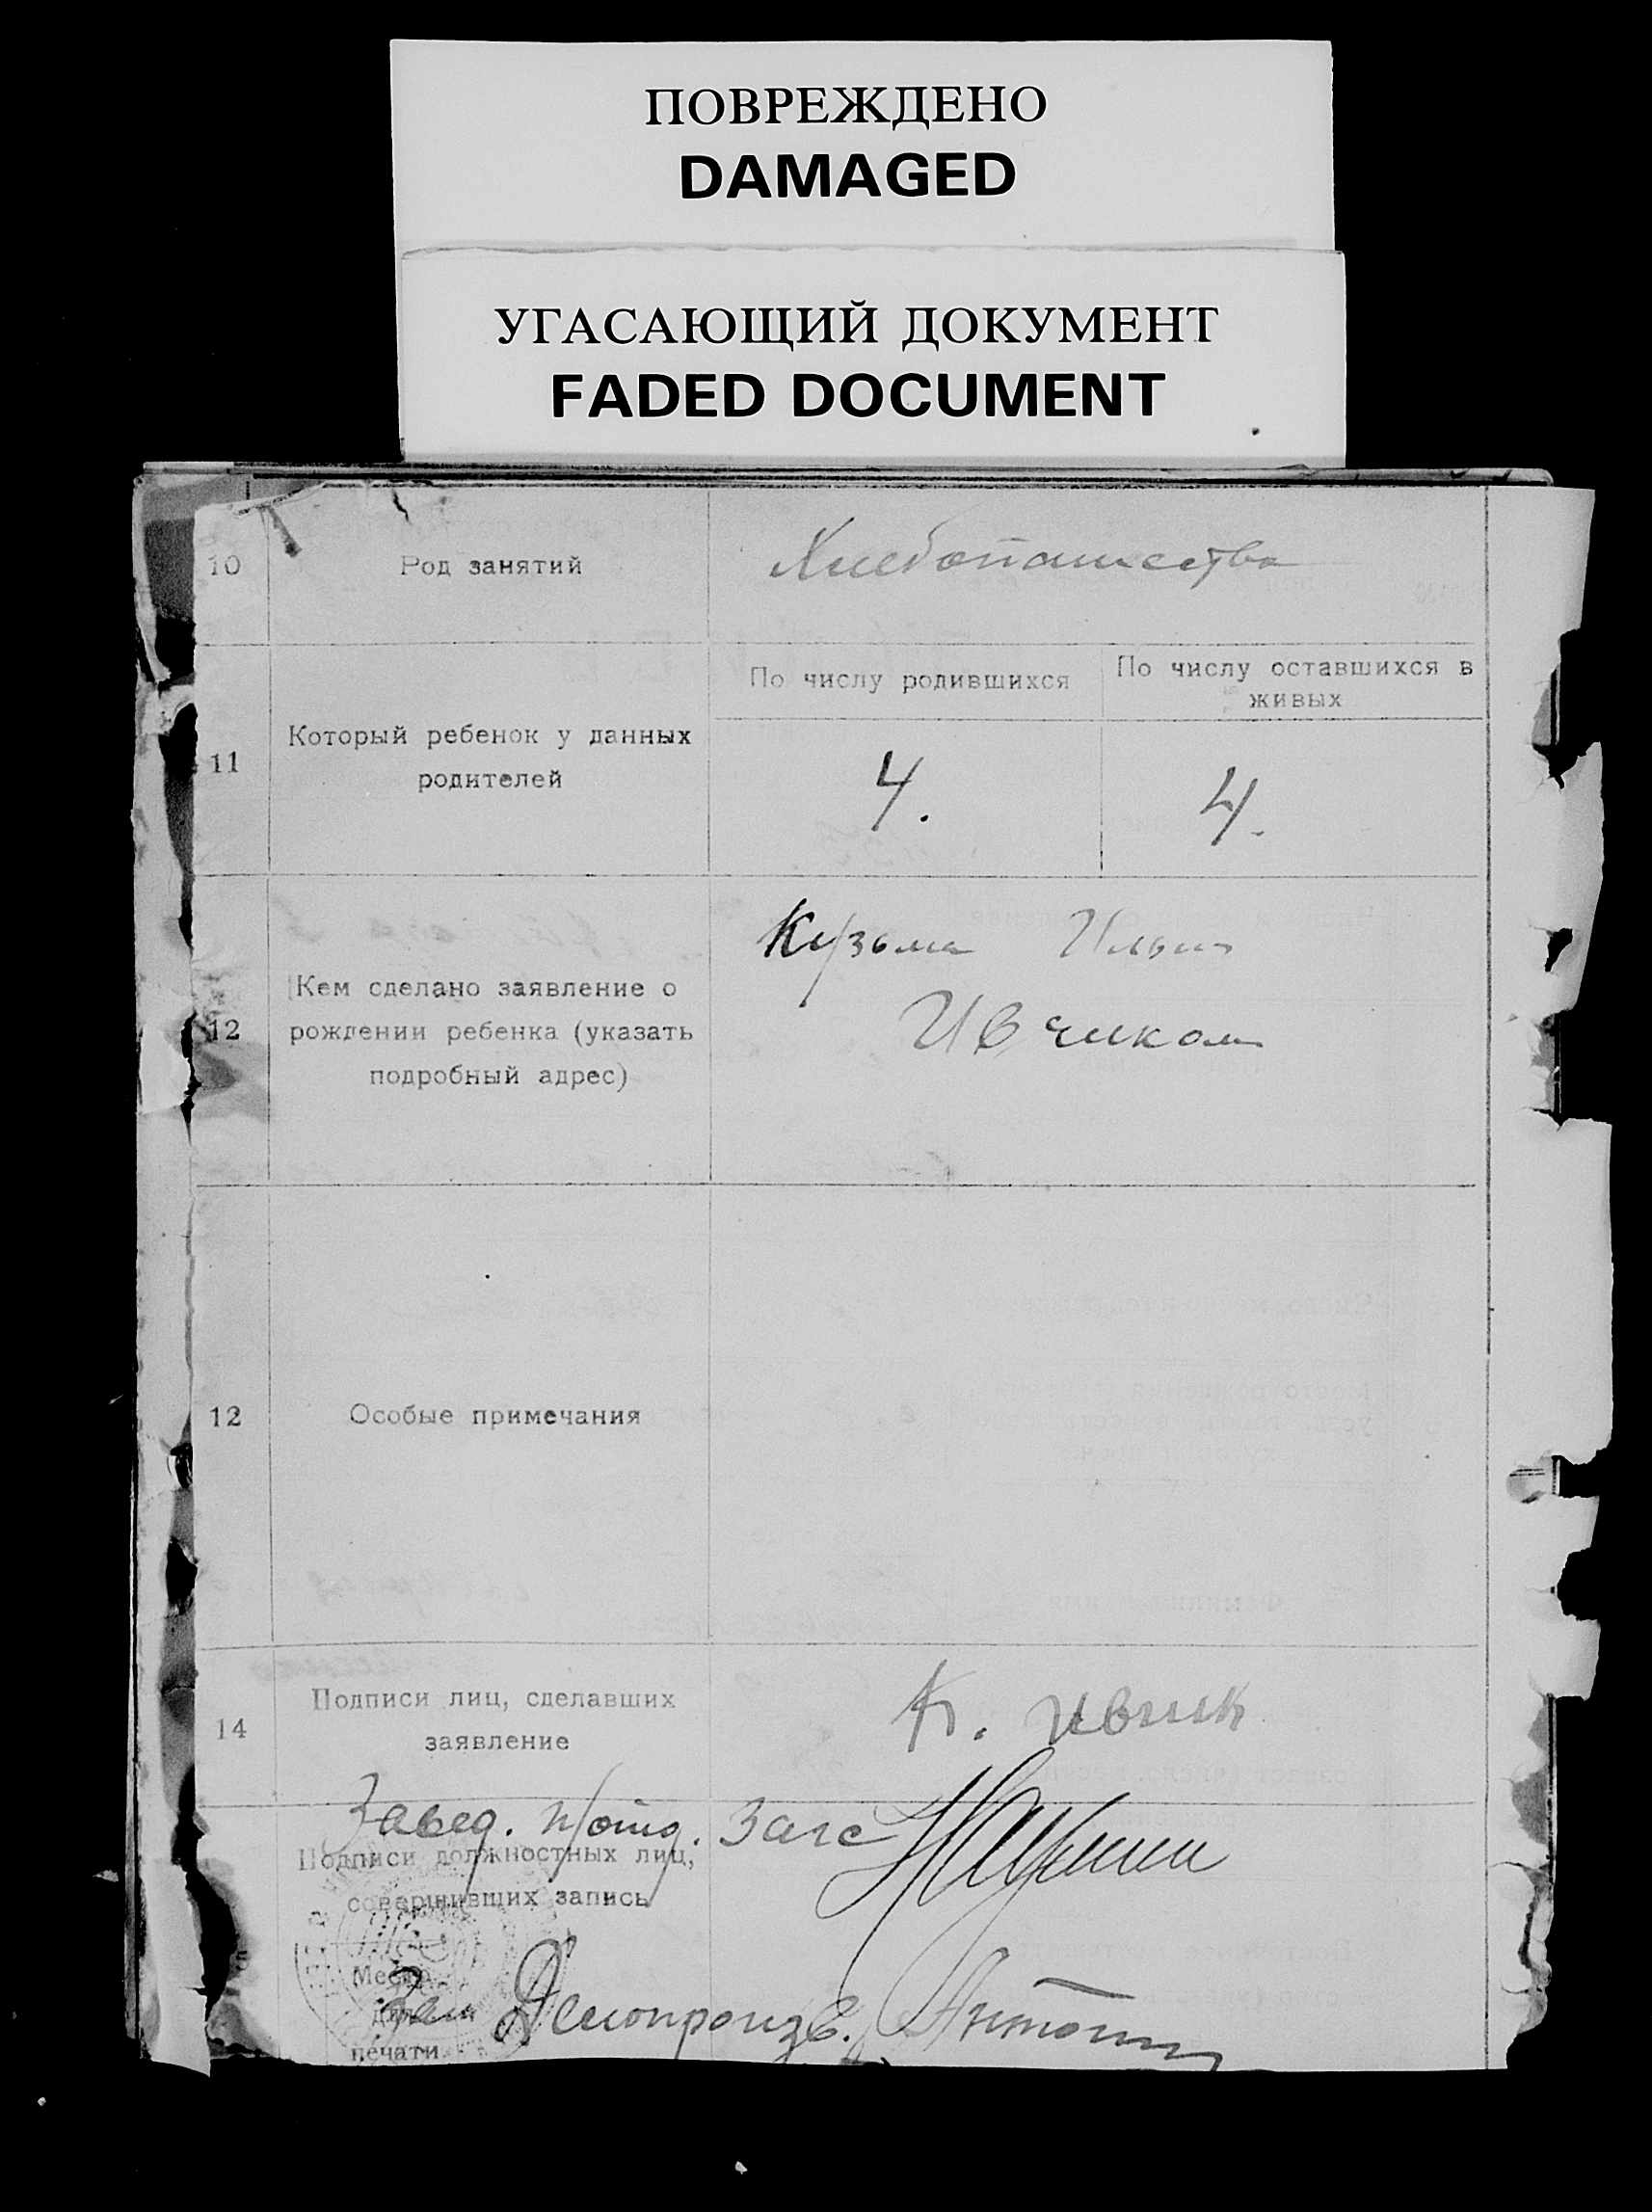 ПОВРЕЖДЕНО
DAMAGED
УГАСАЮЩИЙ ДОКУМЕНТ
FADED DOCUMENT
10 Род занятий Хлебопашество
11 Который ребенок у данных родителей
По числу родившихся
По числу оставшихся в
живых
4.
4.
12 Кем сделано заявление о
рождении ребенка (указать
подробный адрес)
Кузьма Ильич
Ивчиком
12 Особые примечания
14 Подписи лиц, сделавших
заявление
К. Ивчик
Завед. п/отд. Загс
Подписи должностных лиц,
совершивших запись
Место
для
печати
Зам Делопроизв.